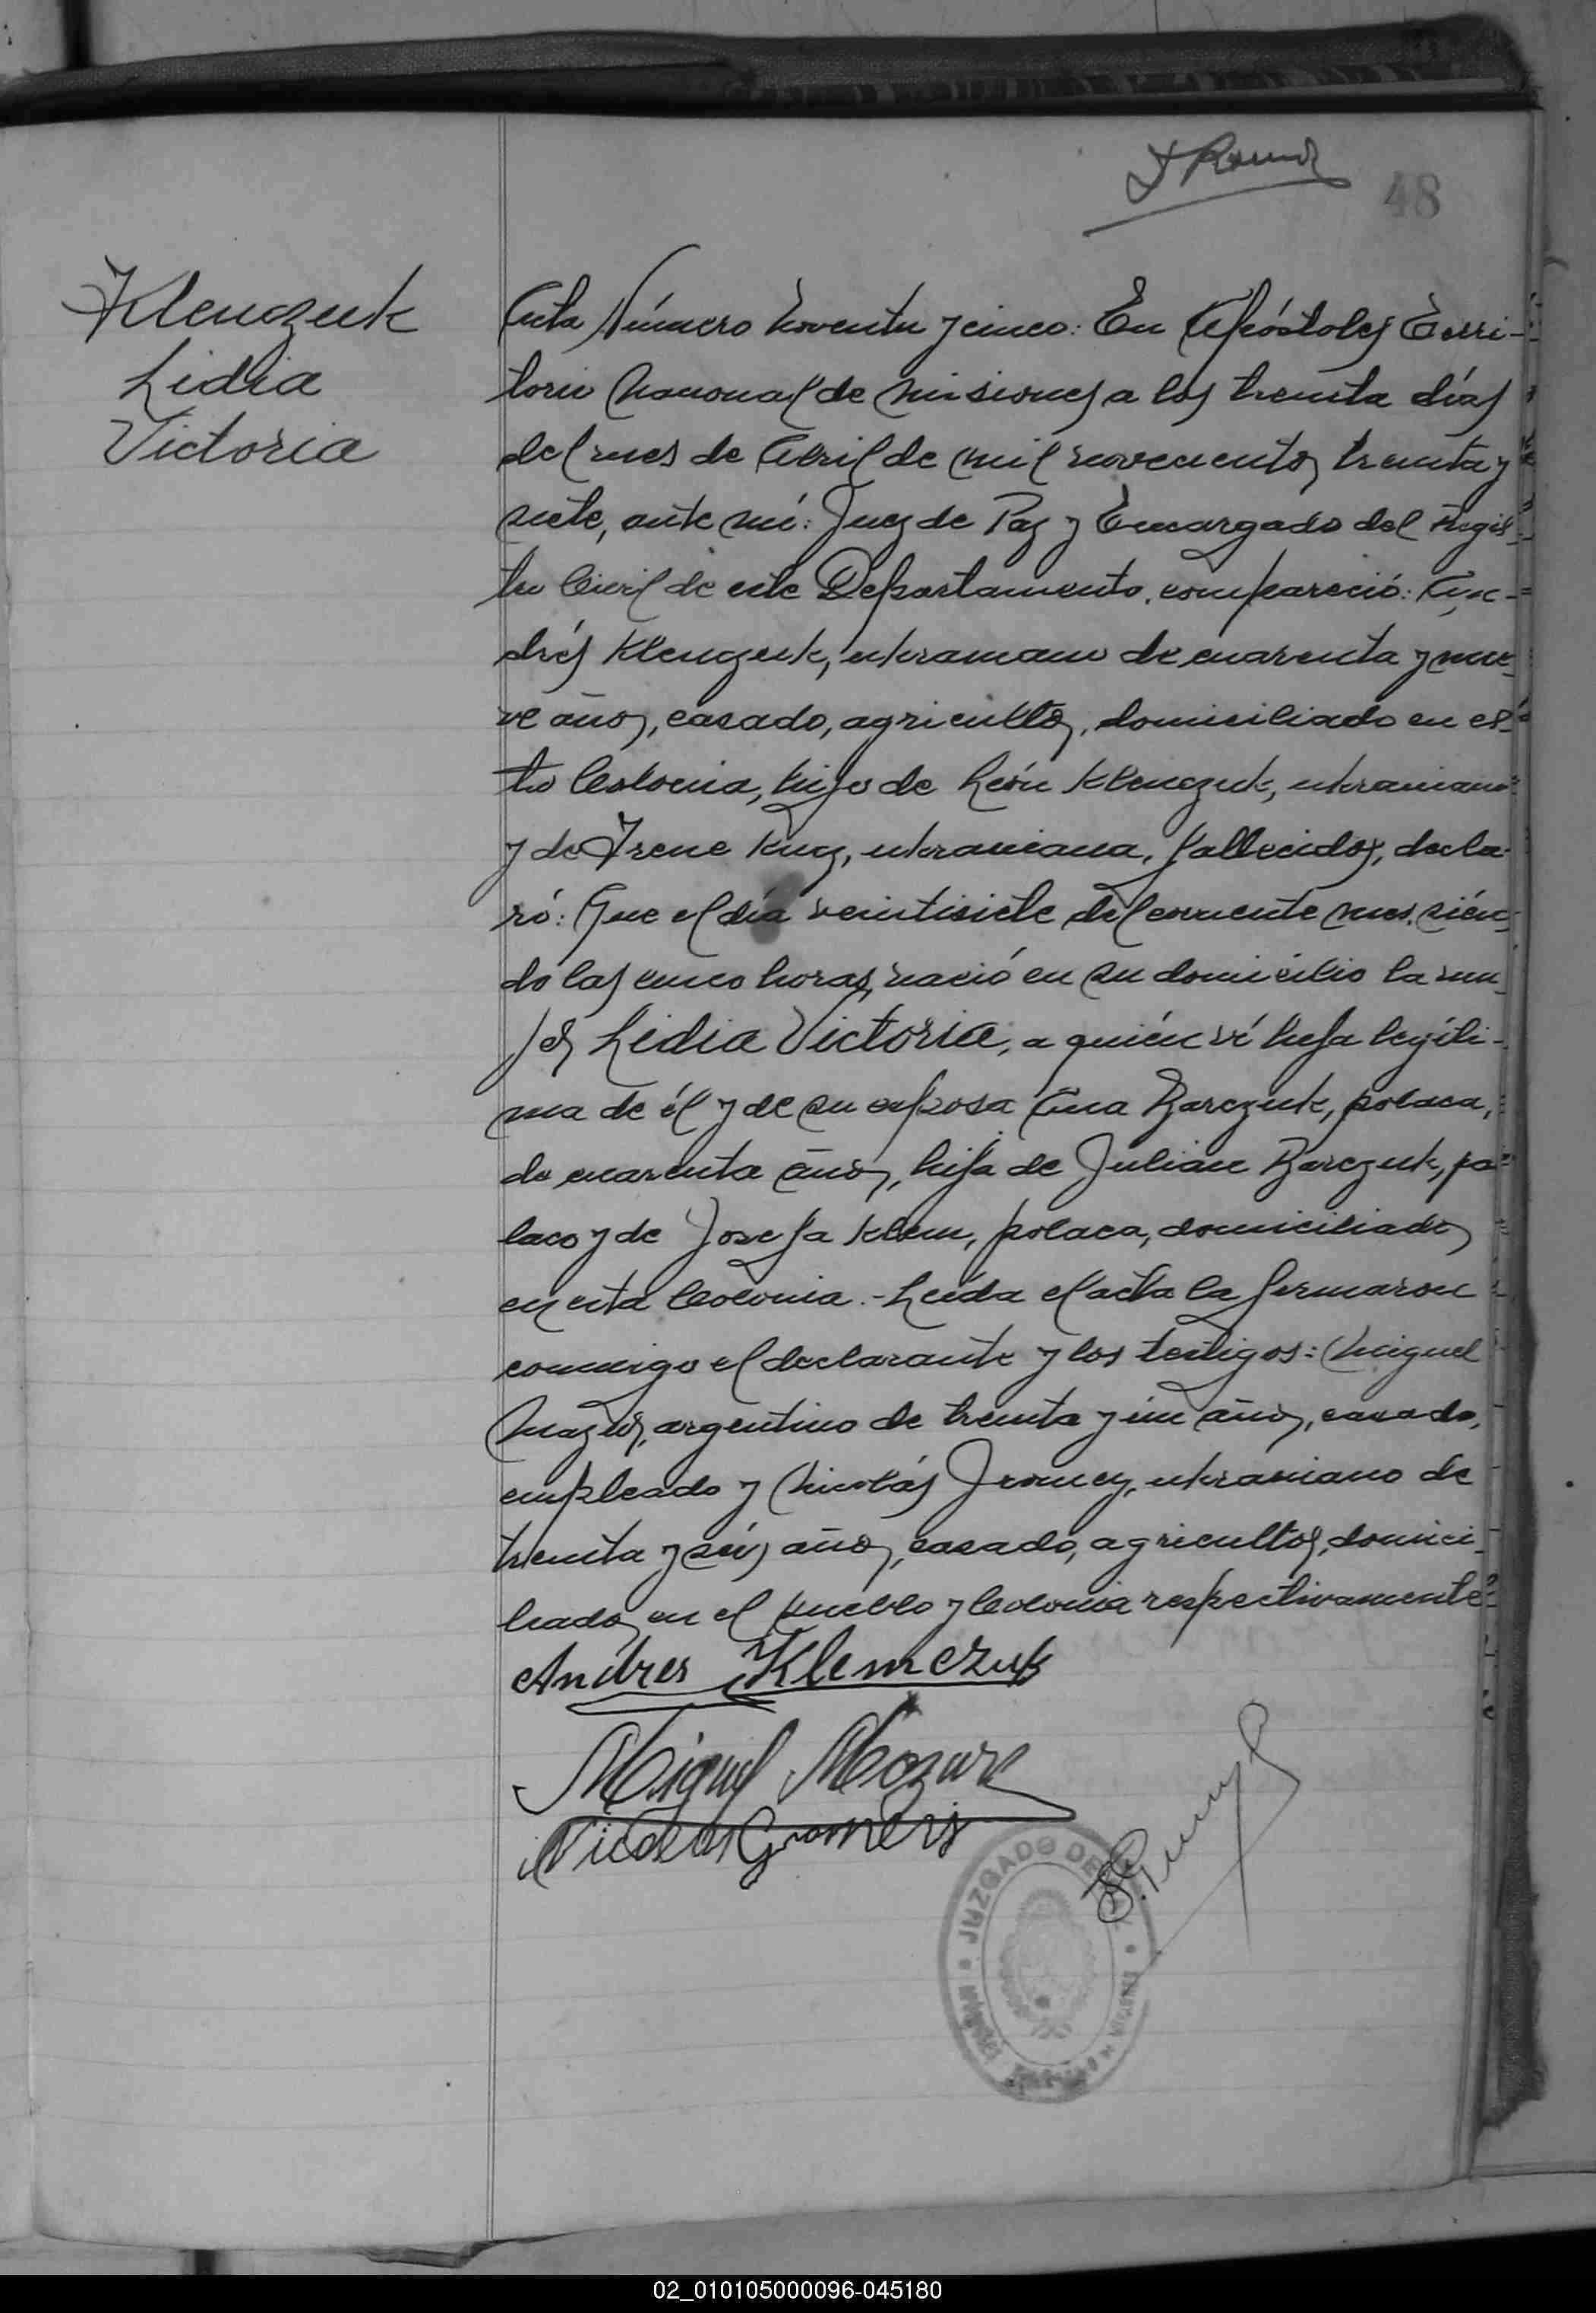 48
Klemczuk
Lidia
Victoria
Acta Número Noventa y cinco: En Apóstoles Terri-
torio Nacional de Misiones a los treinta días
del mes de Abril de mil novecientos treinta y
siete, ante mí: Juez de Paz y Encargado del Regis-
tro Civil de este Departamento, compareció: An-
drés Klemczuk, ukraniano de cuarenta y nue-
ve años, casado, agricultor, domiciliado en es-
ta Colonia, hijo de León Klemczuk, ukraniano
y de Irene Kuz, ukraniana, fallecidos, decla-
ró: Que el día veintisiete del corriente mes, sién-
do las cinco horas, nació en su domicilio la mu-
jer Lidia Victoria, a quién ví hija legíti-
ma de él y de su esposa Ana Barczuk, polaca,
de cuarenta años, hija de Julian Barczuk, po-
laco y de Josefa Klem, polaca, domiciliados
en esta Colonia.- Leída el acta la firmaron
conmigo el declarante y los testigos: Miguel
Mazur, argentino de treinta y ún años, casado,
empleado y Nicolás ukraniano de
treinta y séis años, casado, agricultor, domici-
liados en el pueblo y Colonia respectivamente
Andres Klemczuk
Miguel Mozur
Nicolas Gromeis
JUZGADO DE
MISIONES
02_010105000096-045180